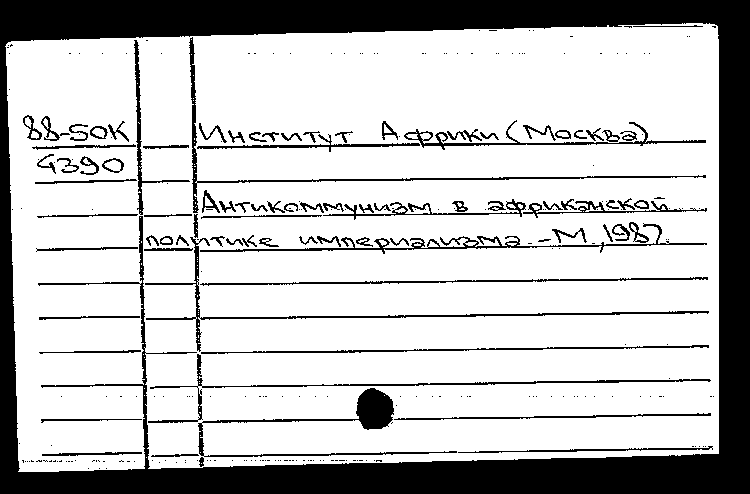 88-5OK Институт Африки (Москва)
4390
Антикоммунизм в африканской
политике империализма. -М., 1987.